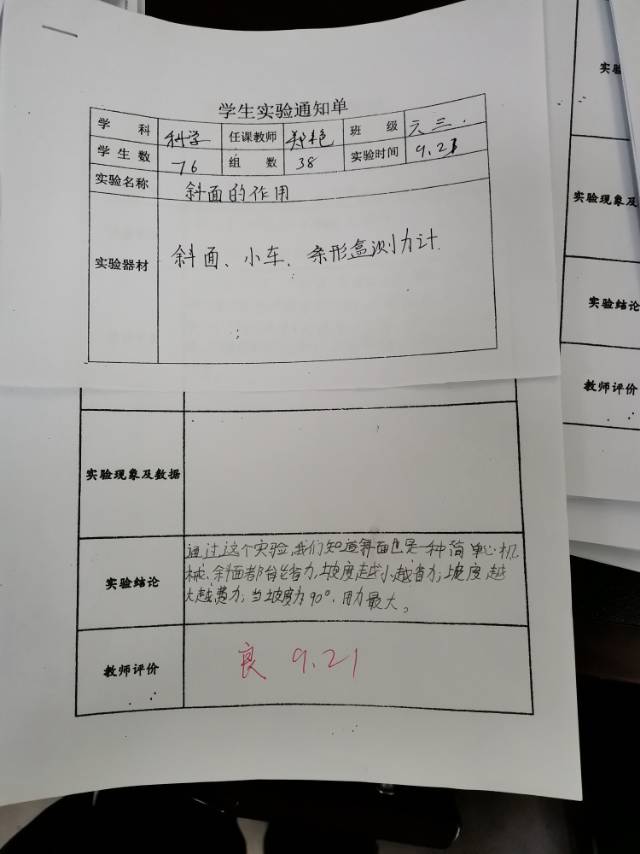 学生实验通知单
学 科 科学 任课教师 郑艳 班 级 六三.
学生数 76 组 数 38 实验时间 9.21
实验名称 斜面的作用
实验器材 斜面、小车、条形盒测力计
实验现象及数据
通过这个实验,我们知道斜面也是一种简单机
实验结论 械,斜面都能省力,坡度越小越省力,坡度越
大越费力,当坡度为90°,用力最大。
教师评价 良 9.21
实验现象及
实验结论
教师评价